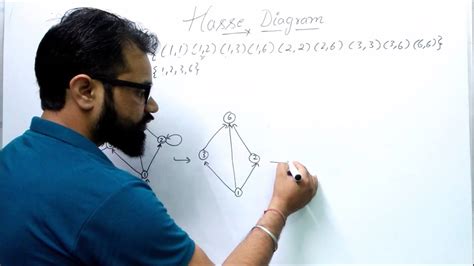 Hasse Diagram
{(1,1) (1,2) (1,3) (1,6) (2,2) (2,6) (3,3) (3,6) (6,6)}
{1,2,3,6}
6
2
3
2
1
1